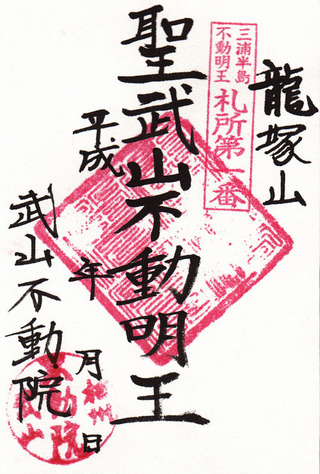 三浦半島
不動明王
札所第一番
龍塚山
聖武山不動明王
平成 年 月 日
武山不動院